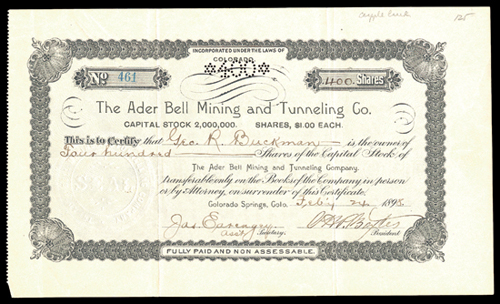 Cripple Creek
125
INCORPORATED UNDER THE LAWS OF
COLORADO.
*400*
No 461
400 Shares
The Ader Bell Mining and Tunneling Co.
CAPITAL STOCK 2,000,000. SHARES, $1.00 EACH.
This is to Certify that Geo. R. Buckman is the owner of
Four hundred Shares of the Capital Stock of
The Ader Bell Mining and Tunneling Company.
transferable only on the Books of the Company in person
or by Attorney, on surrender of this Certificate.
Colorado Springs, Colo. Feb'y 24 1896
Jas.
Asst Secretary.
President
FULLY PAID AND NON ASSESSABLE.